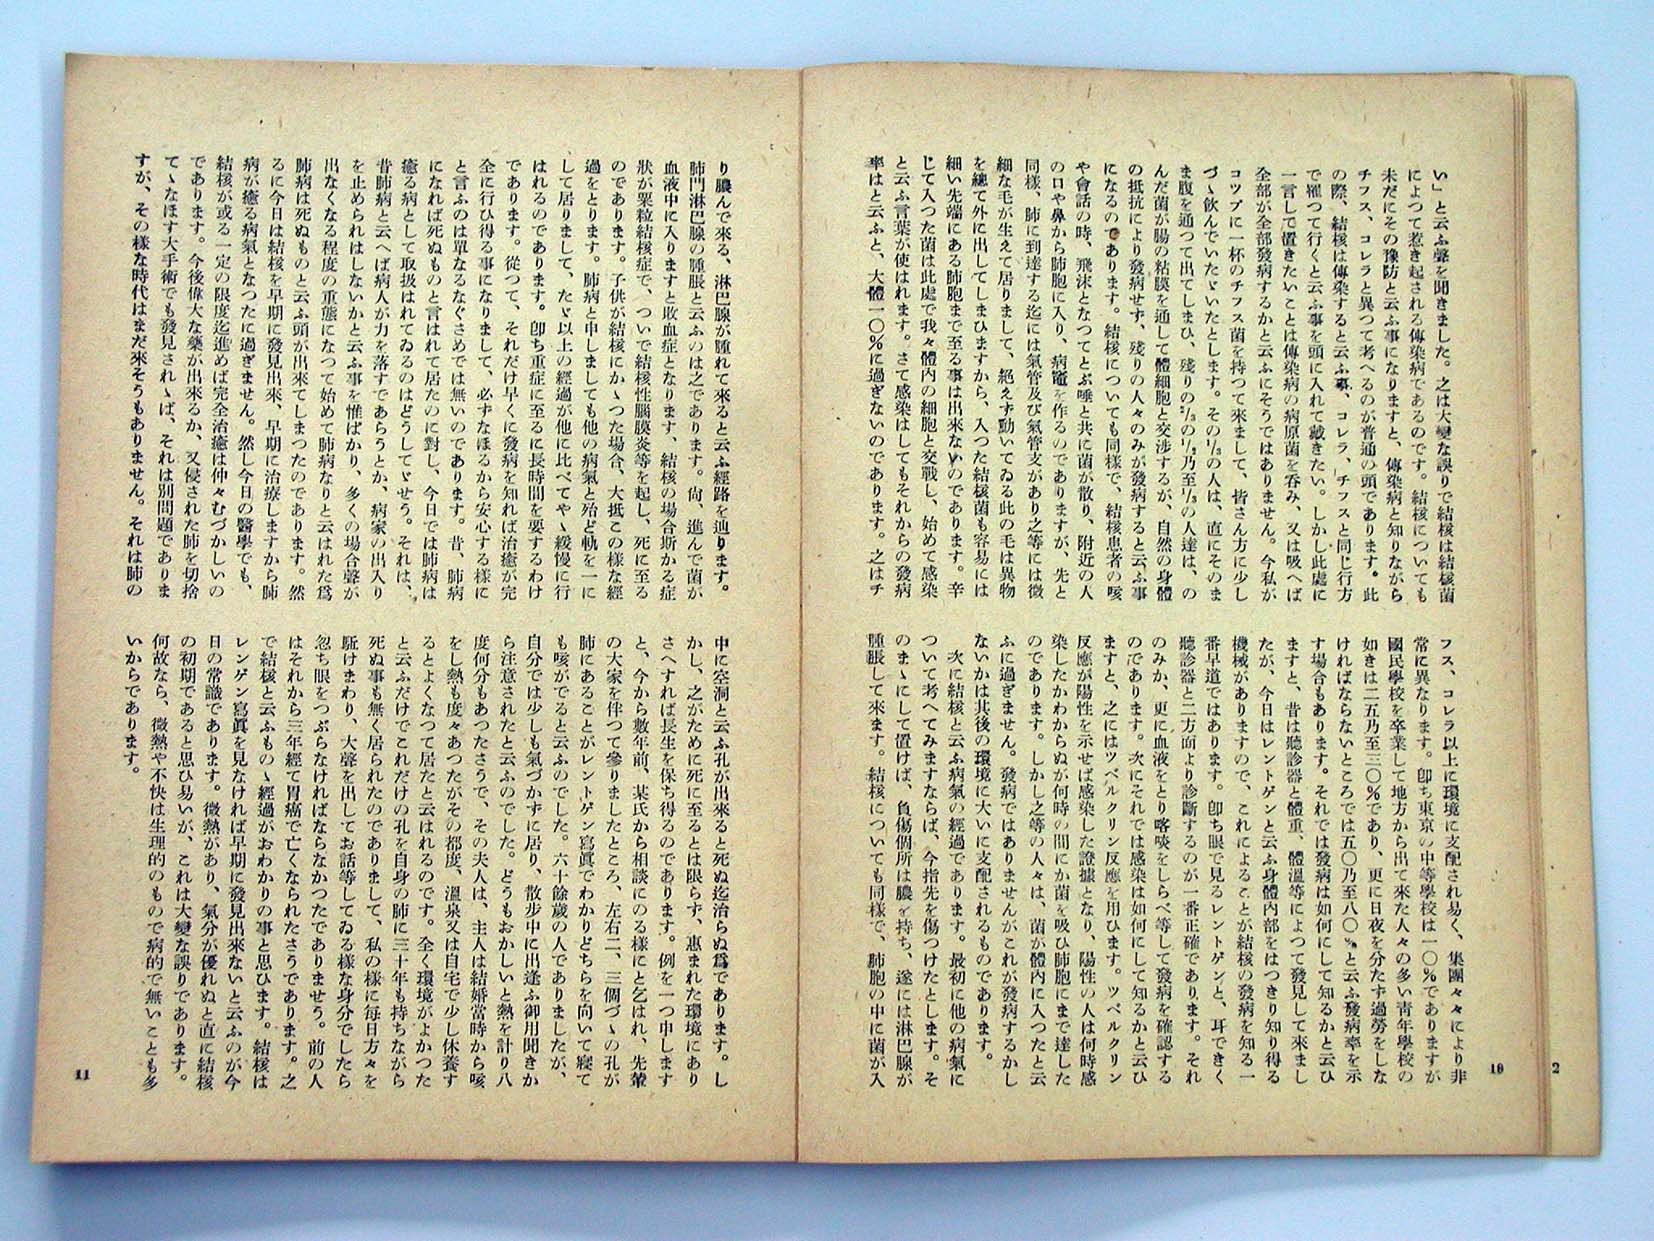 い」と云ふ聲を聞きました。之は大變な誤りで結核は結核菌
によつて惹き起される傳染病であるのです。結核についても
未だにその豫防と云ふ事になりますと、傳染病と知りながら
チフス、コレラと異つて考へるのが普通の頭であります。此
の際、結核は傳染すると云ふ事、コレラ、チフスと同じ行方
で罹つて行くと云ふ事を頭に入れて戴きたい。しかし此處に
一言して置きたいことは傳染病の病原菌を呑み、又は吸へば
全部が全部發病するかと云ふにそうではありません。今私が
コツプに一杯のチフス菌を持つて來まして、皆さん方に少し
づゝ飮んでいたゞいたとします。その⅓の人は、直にそのま
ま腹を通つて出てしまひ、殘りの⅔の½乃至⅓の人達は、の
んだ菌が腸の粘膜を通して體細胞と交涉するが、自然の身體
の抵抗により發病せず、殘りの人々のみが發病すると云ふ事
になるのであります。結核についても同樣で、結核患者の咳
や會話の時、飛沫となつてとぶ唾と共に菌が散り、附近の人
の口や鼻から肺胞に入り、病竈を作るのでありますが、先と
同樣、肺に到達する迄には氣管及び氣管支があり之等には微
細な毛が生えて居りまして、絶えず動いてゐる此の毛は異物
を總て外に出してしまひますから、入つた結核菌も容易には
細い先端にある肺胞まで至る事は出來ないのであります。辛
じて入つた菌は此處で我々體内の細胞と交戰し、始めて感染
と云ふ言葉が使はれます。さて感染はしてもそれからの發病
率はと云ふと、大體一〇%に過ぎないのであります。之はチ
フス、コレラ以上に環境に支配され易く、集團々々により非
常に異なります。卽ち東京の中等學校は一〇%でありますが
國民學校を卒業して地方から出て來た人々の多い靑年學校の
如きは二五乃至三〇%であり、更に日夜を分たず過勞をしな
ければならないところでは五〇乃至八〇%と云ふ發病率を示
す場合もあります。それでは發病は如何にして知るかと云ひ
ますと、昔は聽診器と體重、體溫等によつて發見して來まし
たが、今日はレントゲンと云ふ身體内部をはつきり知り得る
機械がありますので、これによることが結核の發病を知る一
番早道ではあります。卽ち眼で見るレントゲンと、耳できく
聽診器と二方面より診斷するのが一番正確であります。それ
のみか、更に血液をとり喀啖をしらべ等して發病を確認する
のであります。次にそれでは感染は如何にして知るかと云ひ
ますと、之にはツベルクリン反應を用ひます。ツベルクリン
反應が陽性を示せば感染した證據となり、陽性の人は何時感
染したかわからぬが何時の間にか菌を吸ひ肺胞にまで達した
のであります。しかし之等の人々は、菌が體内に入つたと云
ふに過ぎません。發病ではありませんがこれが發病するかし
ないかは其後の環境に大いに支配されるものであります。
次に結核と云ふ病氣の經過であります。最初に他の病氣に
ついて考へてみますならば、今指先を傷つけたとします。そ
のまゝにして置けば、負傷個所は膿を持ち、遂には淋巴腺が
腫脹して來ます。結核についても同樣で、肺胞の中に菌が入
10
2
り膿んで來る、淋巴腺が腫れて來ると云ふ經路を辿ります。
肺門淋巴腺の腫脹と云ふのは之であります。尙、進んで菌が
血液中に入りますと敗血症となります、結核の場合斯かる症
狀が粟粒結核症で、ついで結核性腦膜炎等を起し、死に至る
のであります。子供が結核にかゝつた場合、大抵この樣な經
過をとります。肺病と申しましても他の病氣と殆ど軌を一に
して居りまして、たゞ以上の經過が他に比べてやゝ緩慢に行
はれるのであります。卽ち重症に至るに長時間を要するわけ
であります。從つて、それだけ早くに發病を知れば治癒が完
全に行ひ得る事になりまして、必ずなほるから安心する樣に
と言ふのは單なるなぐさめでは無いのであります。昔、肺病
になれば死ぬものと言はれて居たのに對し、今日では肺病は
癒る病として取扱はれてゐるのはどうしてゞせう。それは、
昔肺病と云へば病人が力を落すであらうとか、病家の出入り
を止められはしないかと云ふ事を惟ばかり、多くの場合聲が
出なくなる程度の重態になつて始めて肺病なりと云はれた爲
肺病は死ぬものと云ふ頭が出來てしまつたのであります。然
るに今日は結核を早期に發見出來、早期に治療しますから肺
病が癒る病氣となつたに過ぎません。然し今日の醫學でも、
結核が或る一定の限度迄進めば完全治癒は仲々むづかしいの
であります。今後偉大な藥が出來るか、又侵された肺を切捨
てゝなほす大手術でも發見されゝば、それは別問題でありま
すが、その樣な時代はまだ來そうもありません。それは肺の
中に空洞と云ふ孔が出來ると死ぬ迄治らぬ爲であります。し
かし、之がために死に至るとは限らず、惠まれた環境にあり
さへすれば長生を保ち得るのであります。例を一つ申します
と、今から數年前、某氏から相談にのる樣にと乞はれ、先輩
の大家を伴つて參りましたところ、左右二、三個づゝの孔が
肺にあることがレントゲン寫眞でわかりどちらを向いて寢て
も咳がでると云ふのでした。六十餘歲の人でありましたが、
自分では少しも氣づかずに居り、散歩中に出逢ふ御用聞きか
ら注意されたと云ふのでした。どうもおかしいと熱を計り八
度何分もあつたさうで、その夫人は、主人は結婚當時から咳
をし熱も度々あつたがその都度、溫泉又は自宅で少し休養す
るとよくなつて居たと云はれるのです。全く環境がよかつた
と云ふだけでこれだけの孔を自身の肺に三十年も持ちながら
死ぬ事も無く居られたのでありまして、私の樣に每日方々を
駈けまわり、大聲を出してお話等してゐる樣な身分でしたら
忽ち眼をつぶらなければならなかつたでありませう。前の人
はそれから三年經て胃癌で亡くなられたさうであります。之
で結核と云ふものゝ經過がおわかりの事と思ひます。結核は
レンゲン寫眞を見なければ早期に發見出來ないと云ふのが今
日の常識であります。微熱があり、氣分が優れぬと直に結核
の初期であると思ひ易いが、これは大變な誤りであります。
何故なら、微熱や不快は生理的のもので病的で無いことも多
いからであります。
11